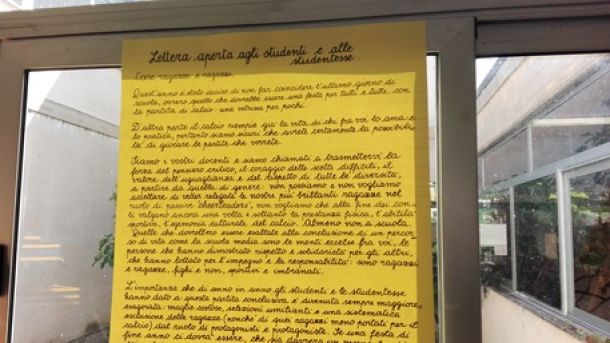 Lettera aperta agli studenti e alle
studentesse.
Care ragazze e ragazzi,
Quest'anno è stato deciso di non far coincidere l'ultimo giorno di
scuola, ovvero quello che dovrebbe essere una festa per tutti e tutte, con
la partita di calcio: una vetrina per pochi.
D'altra parte il calcio riempie già la vita di chi fra voi lo ama e
lo pratica, pertanto siamo sicuri che avrete certamente la possibili
tà di giocare le partite che vorrete.
Siamo i vostri docenti e siamo chiamati a trasmettervi la
forza del pensiero critico, il coraggio delle scelte difficili, il
valore dell'uguaglianza e del rispetto di tutte le diversità,
a partire da quella di genere: non possiamo e non vogliamo
accettare di veder relegate le nostre più brillanti ragazze nel
ruolo di pasive cheerleaders; non vogliamo che alla fine dei con
ti valgano ancora una volta e soltanto la prestanza fisica, l'abilità
sportiva, l'egemonia culturale del calcio. Almeno non a scuola.
Quelle che dovrebbero essere esaltate alla conclusione di un percor
so di vita come la scuola media sono le menti eccelse fra voi, le
persone che hanno dimostrato rispetto e solidarietà per gli altri,
che hanno lottato per l'impegno e la responsabilità: sono ragazzi
e ragazze, fighi e non, sportivi e imbranati.
L'importanza che di anno in anno gli studenti e le studentesse
hanno dato a questa partita conclusiva è divenuta sempre maggiore,
esagerata: maglie costose, selezioni umilianti e una sistematica
esclusione delle ragazze (nonché di quei ragazzi meno portati per il
calcio) dal ruolo di protagonisti e protagoniste. Se una festa di
fine anno ci dovrà essere, che sia davvero un momento